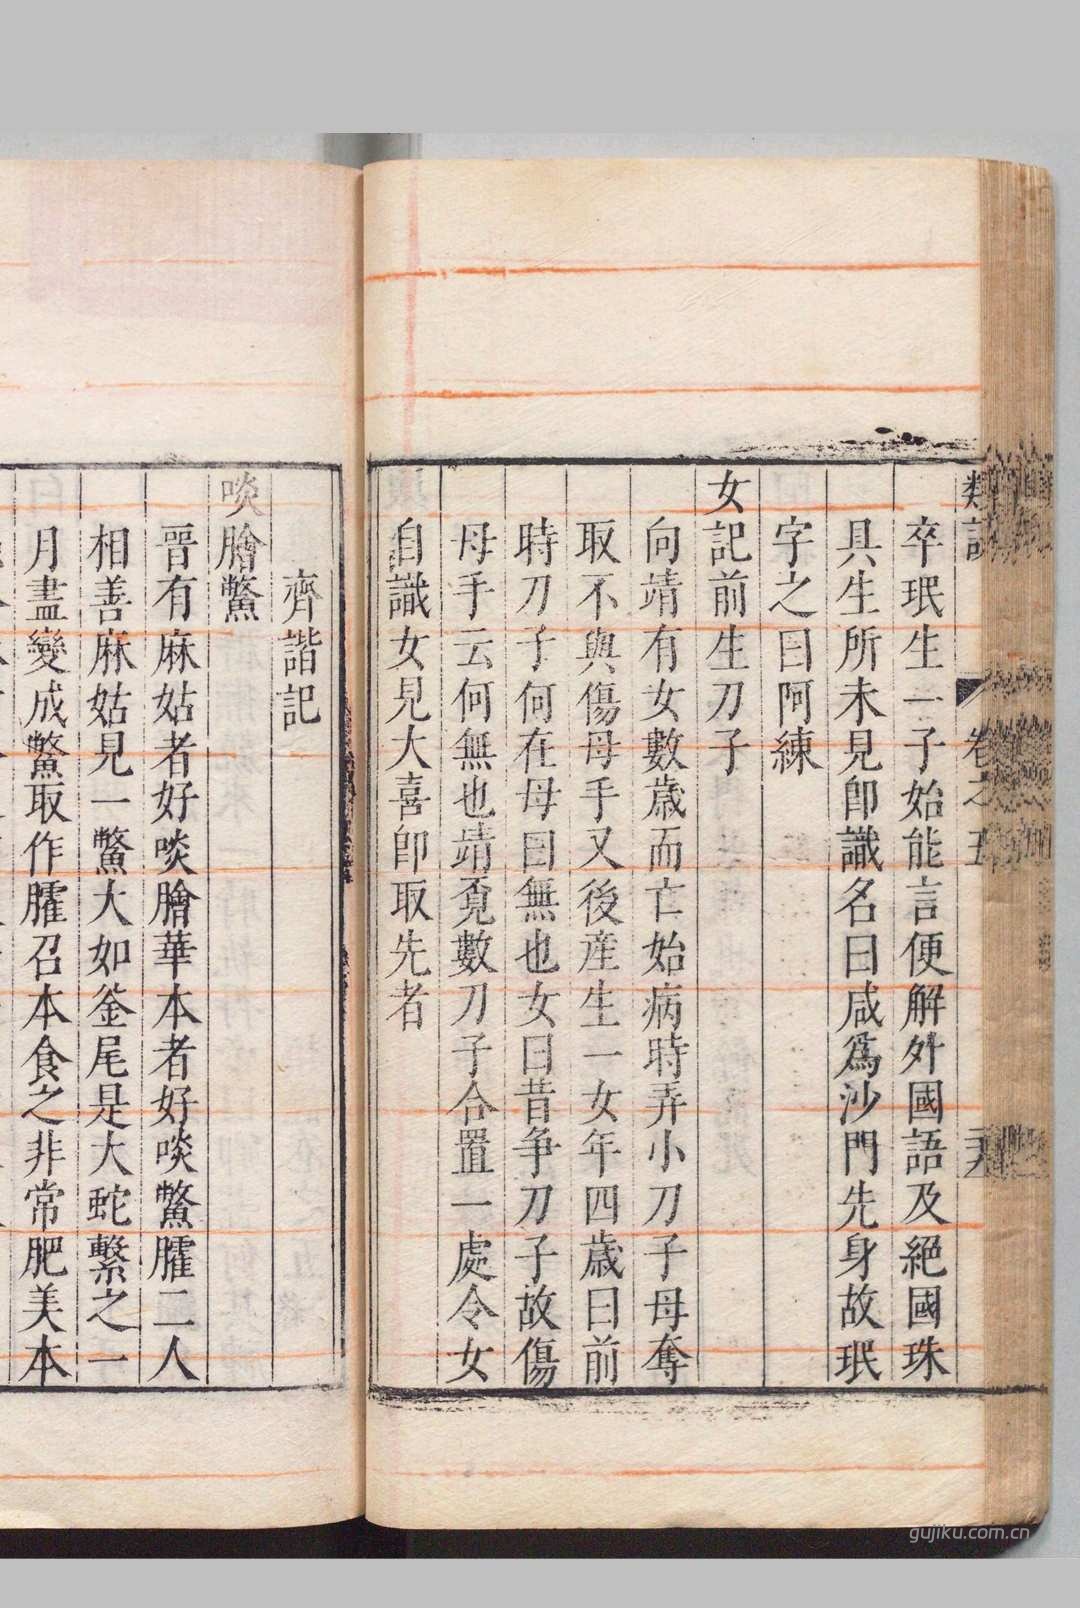 卒珉生一子始能言便解外國語及絕國珠
具生所未見卽識名曰咸爲沙門先身故珉
字之曰阿練
女記前生刀子
向靖有女數歲而亡始病時弄小刀子母奪
取不與傷母手又後産生一女年四歲曰前
時刀子何在母曰無也女曰昔争刀子故傷
母手云何無也靖覔數刀子合置一處令女
自識女見大喜卽取先者
齊諧記
啖膾鱉
晉有麻姑者好啖膾華本者好啖鱉臛二人
相善麻姑見一鱉大如釜尾是大蛇繫之一
月盡變成鱉取作臛召本食之非常肥美本
gujiku.com.cn